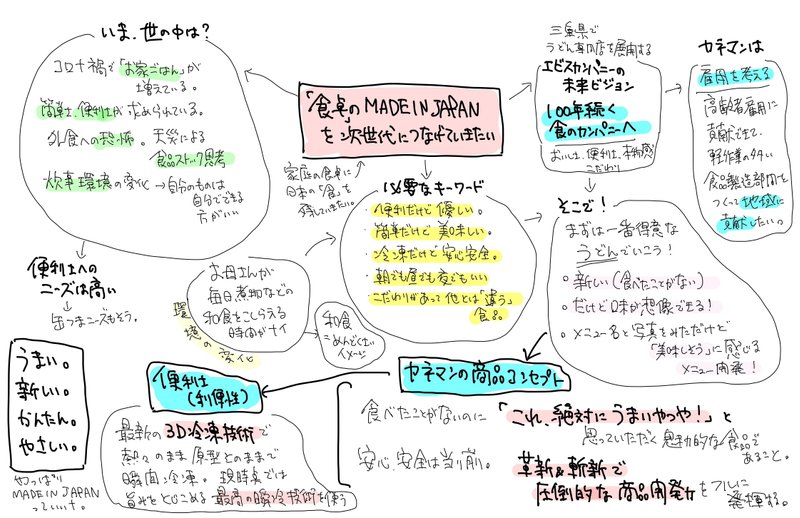 いま、世の中は?
コロナ禍で「お家ごはん」が
増えている。
簡単さ、便利さが求められている。
外食への恐怖。天災による
食品ストック思考
炊事環境の変化→自分のものは
自分でできる
方がいい
便利さへの
ニーズは高い
缶つまニーズもそう。
うまい。
新しい。
かんたん。
やさしい。
やっぱり
MADE IN JAPAN
っていいナ。
「食卓のMADE IN JAPAN」
を次世代につなげていきたい
家庭の食卓に
日本の「食」を
残していきたい。
必要なキーワード
・便利だけど優しい。
・簡単だけど美味しい。
・冷凍だけど安心安全。
・朝でも昼でも夜でもいい
・こだわりがあって他とは「違う」
食品
お母さんが
毎日煮物などの
和食をこしらえる
時間がナイ
環境の変化
和食
=めんどくさい
イメージ
三重県で
うどん専門店を展開する
エビスカンパニーの
未来ビジョン
100年続く
食のカンパニーへ
おいしさ、便利さ、本物感
こだわり
カネマンは
雇用を考える
高齢者雇用に
貢献できて、
軽作業の多い
食品製造部門を
つくって地域に
貢献したい。
そこで!
まずは一番得意な
うどんでいこう!
・新しい(食べたことがない)
・だけど味が想像できる!
・メニュー名と写真をみただけど
「美味しそう」に感じる
メニュー開発!
カネマンの商品コンセプト
食べたことがないのに「これ、絶対にうまいやつや!」と
思っていただく魅力的な食品で
あること。
安心、安全は当り前。
革新&斬新で
圧倒的な商品開発力をフルに
発揮する。
便利さ
(利便性)
最新の3D冷凍技術で
熱々のまま原型をとのままで
瞬間冷凍。現時点では
旨みをとじこめる最高の瞬冷技術を使う